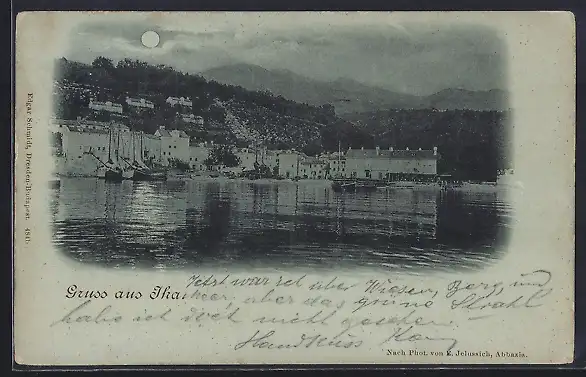 Edgar Schmidt, Dresden-Budapest. 4811.
Gruss aus Ika
Jetzt war ich über Wiesen, Berg, und
hier, aber das grüne Strahl
habe ich doch nicht gesehen.
Handkuss
Nach Phot. von E. Jelussich, Abbazia.